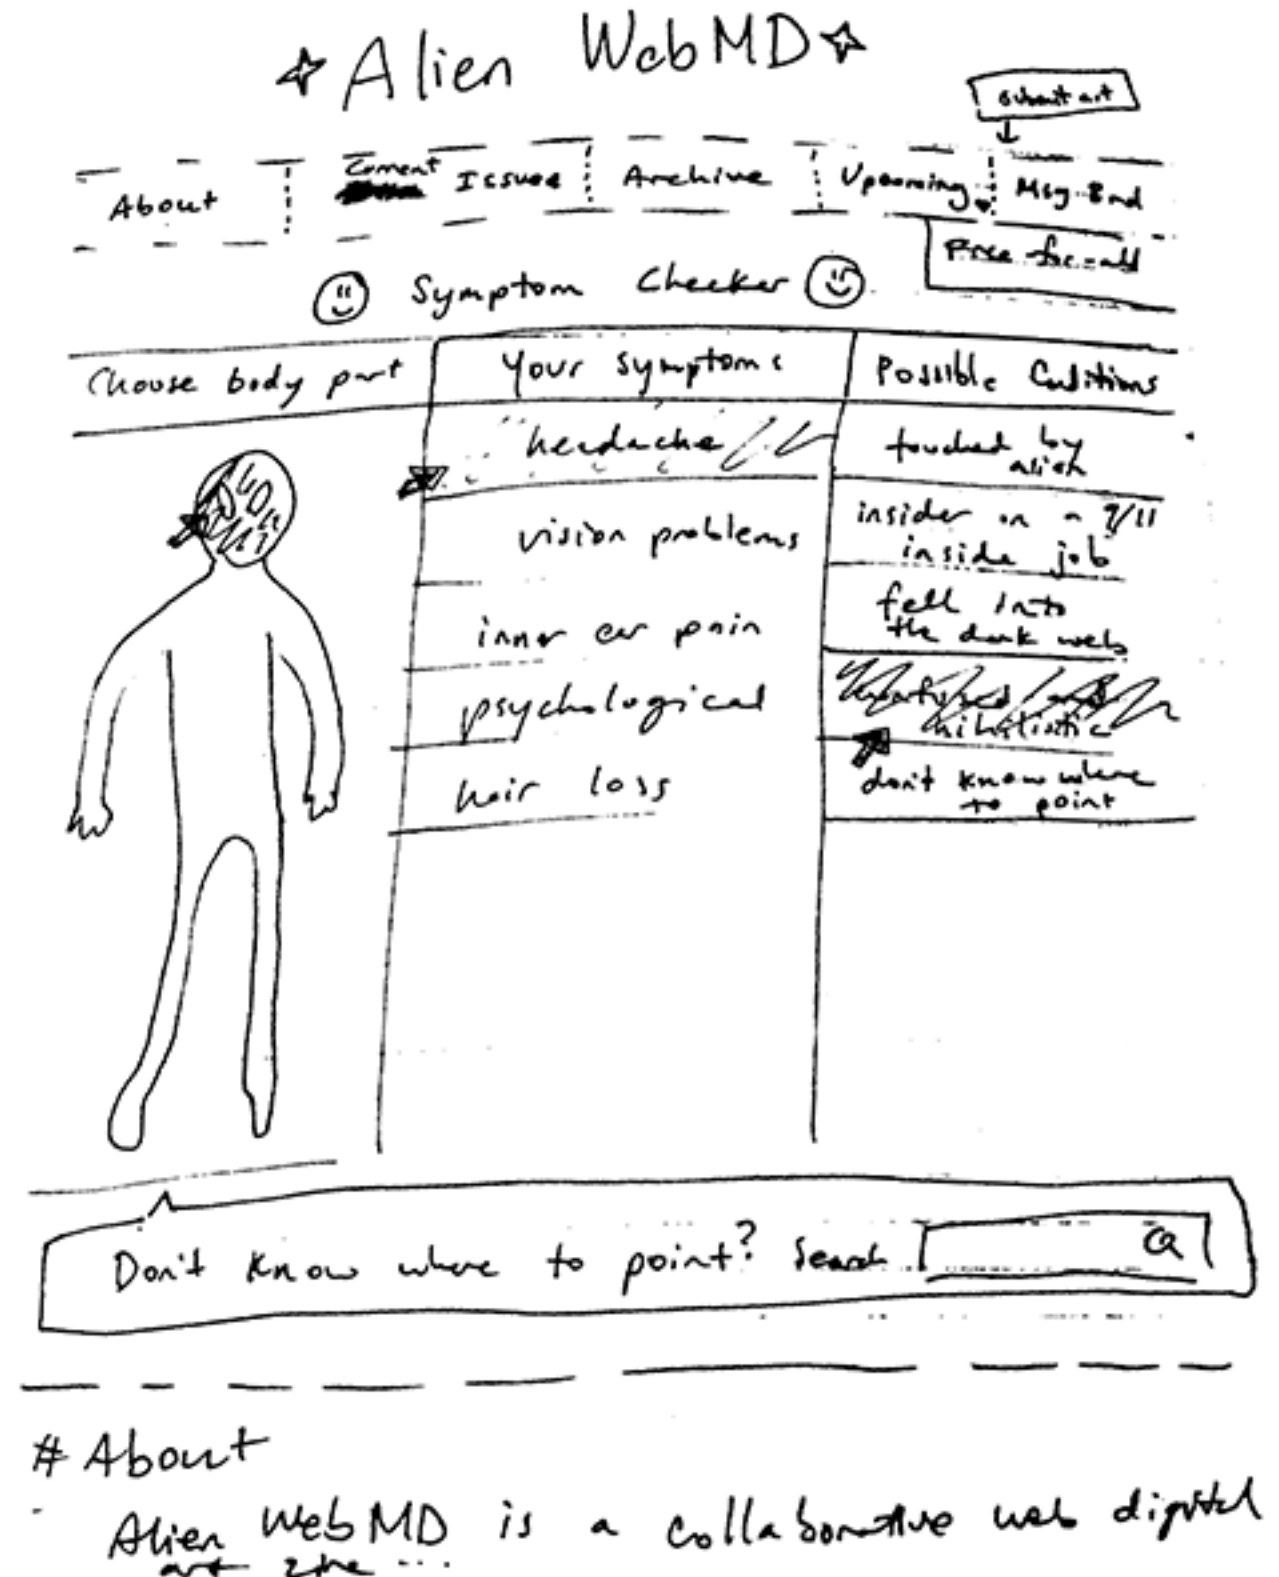 Alien WebMD
submit art
About
Current Issue
Archive
Upcoming
Msg Brd
Free-for-all
Symptom Checker
Choose body part
Your symptoms
Possible Conditions
headache
touched by
alien
vision problems
insider on a 9/11
inside job
inner ear pain
fell into
the dark web
psychological
nihilistic
hair loss
don't know where
to point
Don't know where to point? Search
# About
Alien WebMD is a collaborative web digital
art zine ...